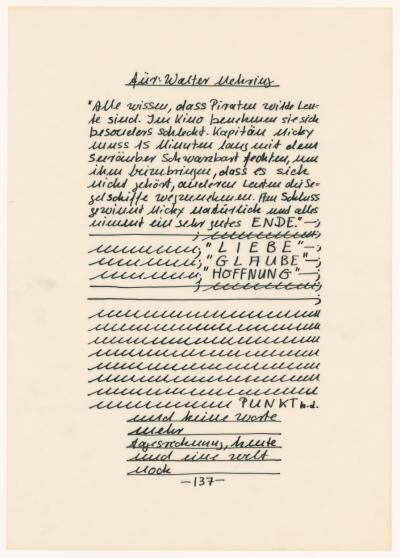 für: Walter Mehring
"Alle wissen, dass Piraten wilde Leu-
te sind. Im Kino benehmen sie sich
besonders schlecht. Kapitän Micky
muss 15 Minuten lang mit dem
Seeräuber Schwarzbart fechten, um
ihm beizubringen, dass es sich
nicht gehört, anderen Leuten die Se-
gelschiffe wegzunehmen. Am Schluss
gewinnt Micky natürlich und alles
nimmt ein sehr gutes ENDE."—;
;"LIEBE"—;
;"GLAUBE"—;
;"HOFFNUNG"—;
PUNKT h.d.
und keine worte
mehr
tagesrechnung, heute
und eine welt
noch
—137—